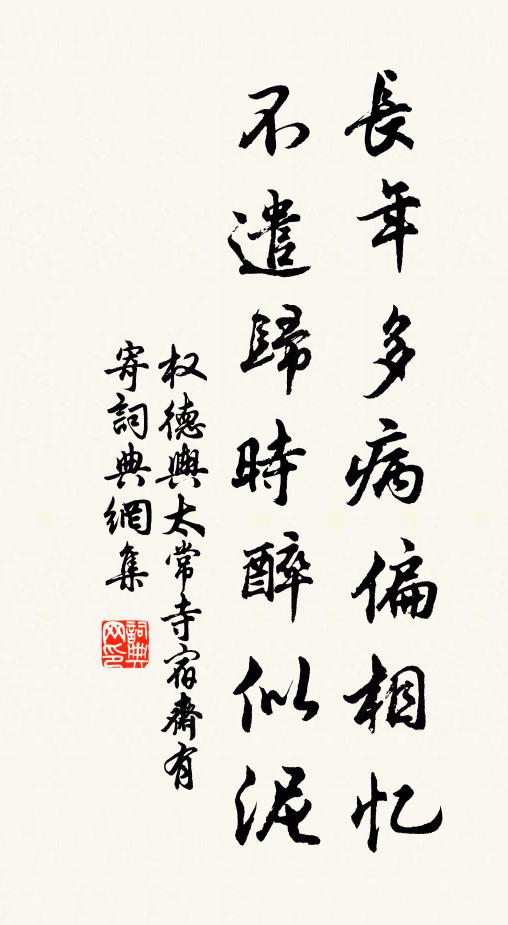 長年多病偏相忆
不遣歸時醉似泥
权德輿太常寺宿齋有
寄詞典網集
詞典网印